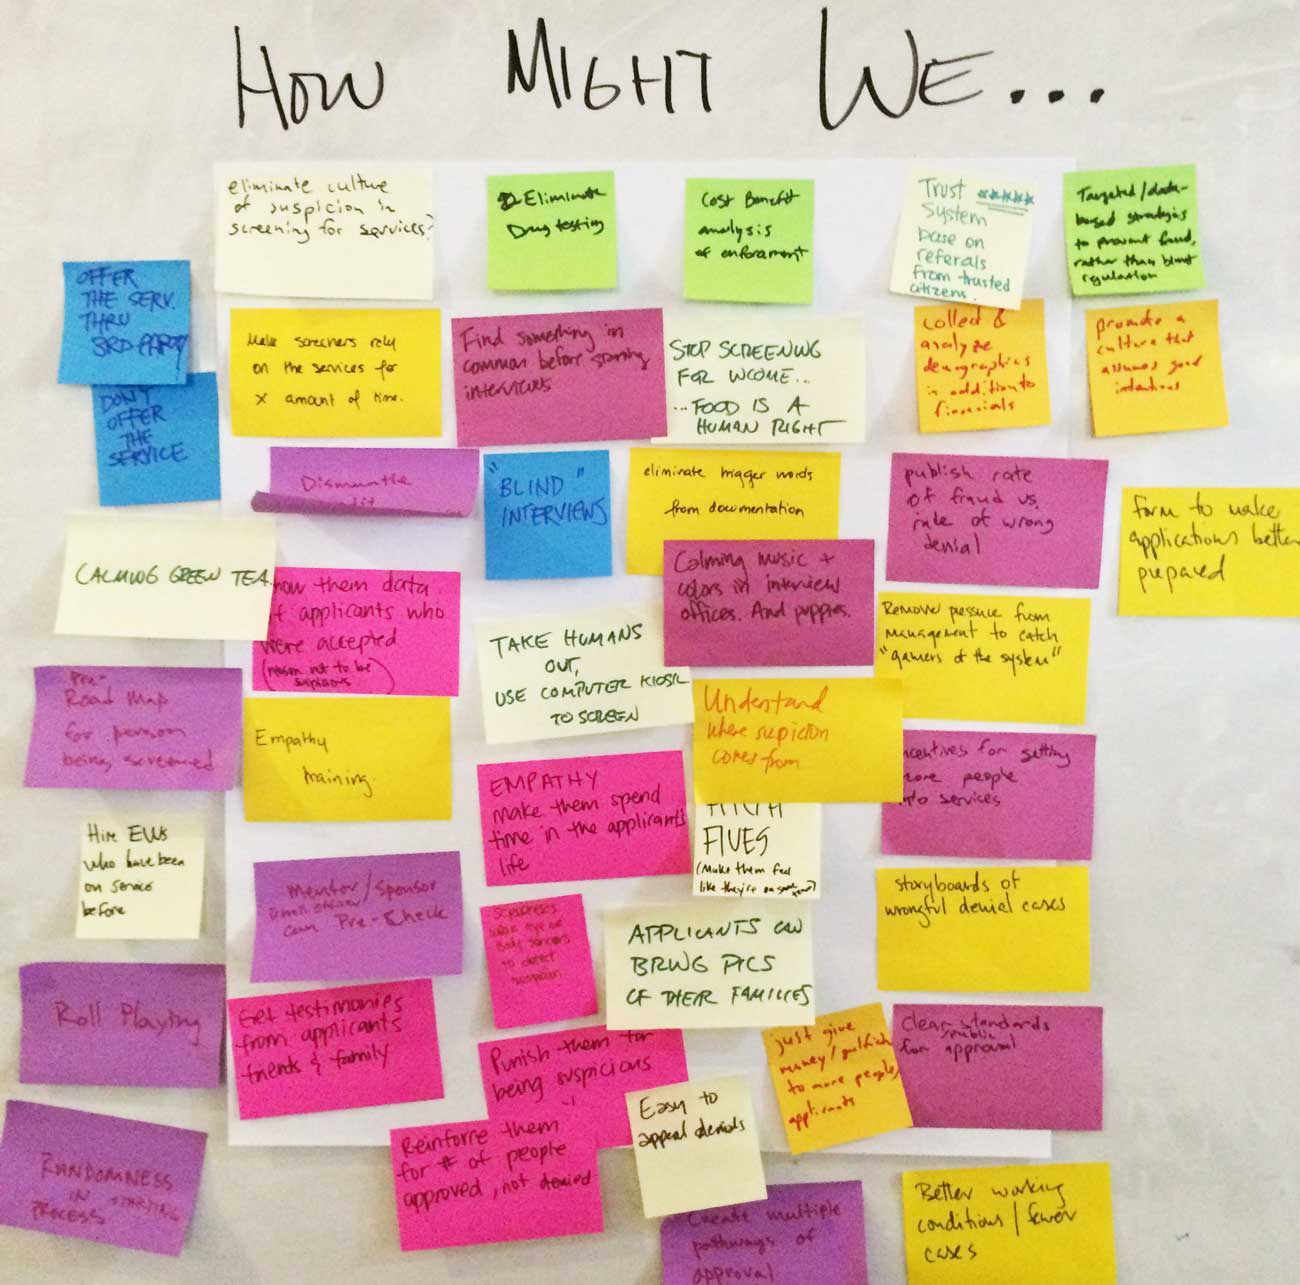 HOW MIGHT WE...
eliminate culture
of suspicion in
screening for services?
Eliminate
Drug testing
Cost Benefit
analysis
of enforcement
Trust *****
System
base on
referals
from trusted
citizens.
Targeted/data-
based strategies
to prevent fraud,
rather than blunt
regulation
OFFER
THE SERV.
THRU
3RD PARTY
DON'T
OFFER
THE
SERVICE
Make screeners rely
on the services for
X amount of time.
Find something in
common before starting
interviews
STOP SCREENING
FOR INCOME...
...FOOD IS A
HUMAN RIGHT
collect &
analyze
demographics
in addition to
financials
promote a
culture that
assumes good
intentions
Dismantle
"BLIND"
INTERVIEWS
eliminate trigger words
from documentation
publish rate
of fraud vs.
rate of wrong
denial
form to make
applications better
prepared
CALMING GREEN TEA
how them data
f applicants who
were accepted
(reason not to be
suspicious)
TAKE HUMANS
OUT,
USE COMPUTER KIOSK
TO SCREEN
Calming music +
colors in interview
offices. And puppies.
Remove pressure from
management to catch
"gamers of the system"
Pre-
Road Map
for person
being screened
Empathy
training.
Understand
where suspicion
comes from
incentives for getting
more people
into services
EMPATHY
make them spend
time in the applicant's
life
HIGH
FIVES
(Make them feel
like they're on same
Hire EWs
who have been
on service
before
Mentor/Sponsor
can Pre-Check
Screeners
wear
Body sensors
to detect
suspicion
APPLICANTS CAN
BRING PICS
OF THEIR FAMILIES
storyboards of
wrongful denial cases
Roll Playing
Get testimonies
from applicants
friends & family
Punish them for
being suspicious
just give
money/
to more people/
applicants
Clear standards
public
for approval
RANDOMNESS
IN STARTING
PROCESS
Reinforce them
for # of people
approved, not denied
Easy to
appeal denials
Create multiple
pathways of
approval
Better working
conditions/fewer
cases